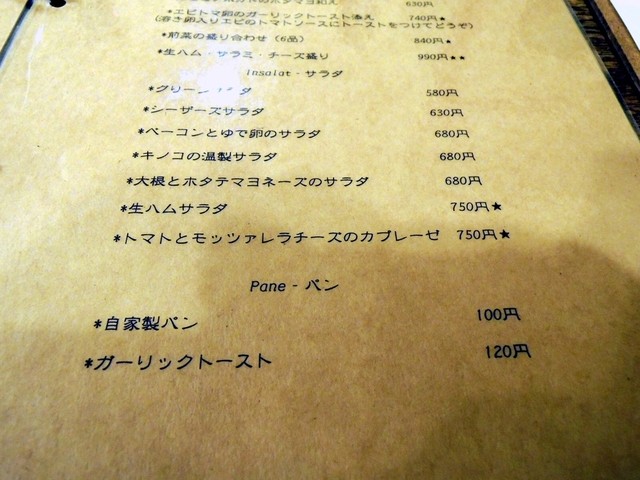 のホタテマヨ和え 630円
*エビトマ卵のガーリックトースト添え 740円★
(溶き卵入りエビのトマトソースにトーストをつけてどうぞ)
*前菜の盛り合わせ (6品) 840円★
*生ハム・サラミ・チーズ盛り 990円★★
Insalat・サラダ
*グリーン ダ 580円
*シーザーズサラダ 630円
*ベーコンとゆで卵のサラダ 680円
*キノコの温製サラダ 680円
*大根とホタテマヨネーズのサラダ 680円
*生ハムサラダ 750円★
*トマトとモッツァレラチーズのカプレーゼ 750円★
Pane - パン
*自家製パン 100円
*ガーリックトースト 120円